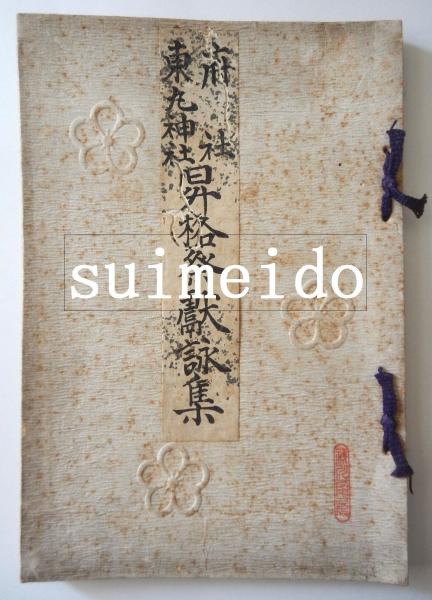 府社
東丸神社
昇格祭献詠集
suimeido